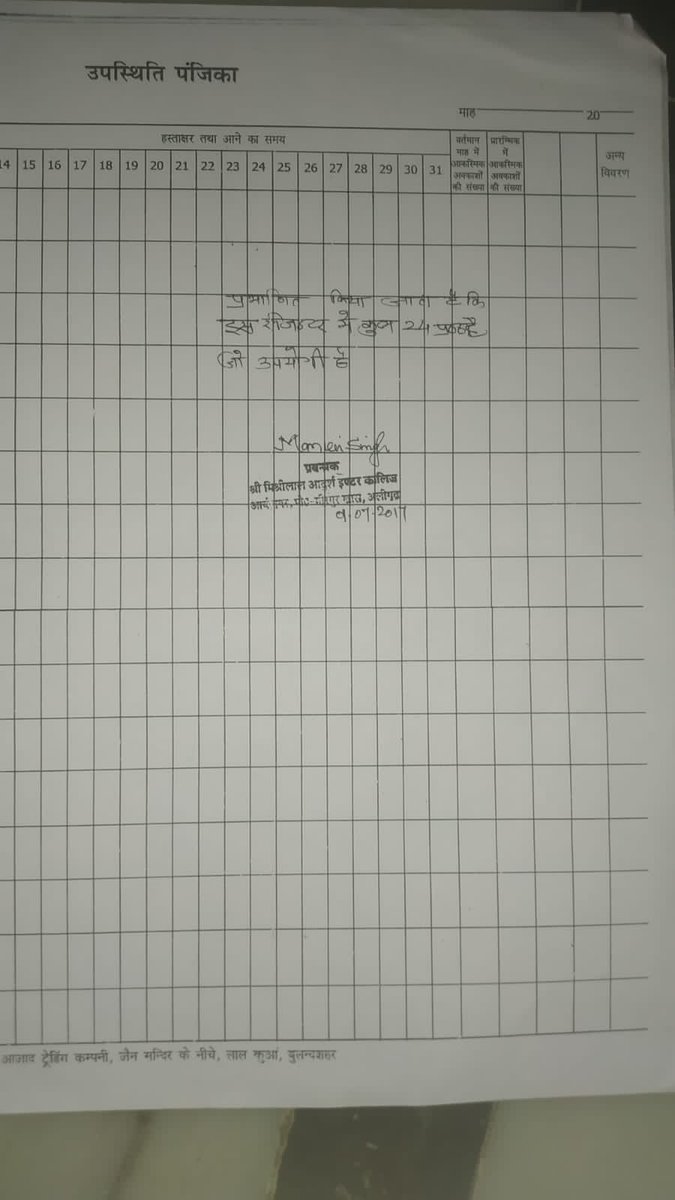 उपस्थिति पंजिका
माह 20
हस्ताक्षर तथा आने का समय
14 15 16 17 18 19 20 21 22 23 24 25 26 27 28 29 30 31
वर्तमान
माह में
आकस्मिक
अवकाशों
की संख्या
प्रारम्भिक
में
आकस्मिक
अवकाशों
की संख्या
अन्य
विवरण
प्रमाणित किया जाता है कि
इस रजिस्टर मे कुल 24 पृष्ठ है
जो उपयोगी है
Singh
प्रबन्धक
श्री मिश्रीलाल आदर्श इण्टर कालिज
आर्य नगर, अलीगढ़
07.2017
आजाद ट्रेडिंग कम्पनी, जैन मन्दिर के नीचे, लाल कुआं, बुलन्दशहर